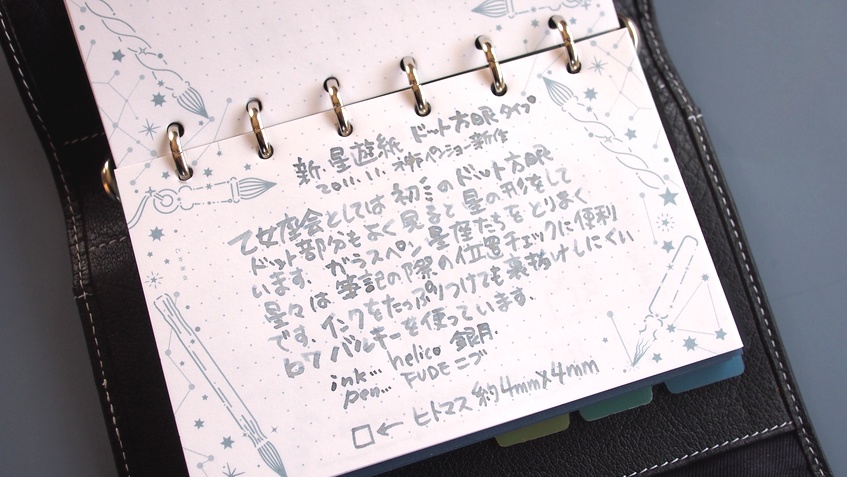 新・星遊紙 ドット方眼タイプ
2011.11. 神戸ペンショー新作
乙女座会としては初ミのドット方眼
ドット部分もよく見ると星の形をして
います。ガラスペン星座たちをとりまく
星々は筆記の際の位置チェックに便利
です。インクをたっぷりつけても裏抜けしにくい
b7バルキーを使っています。
ink… helico 銀月.
pen… FUDE ニブ
□← ヒトマス 約4mm×4mm